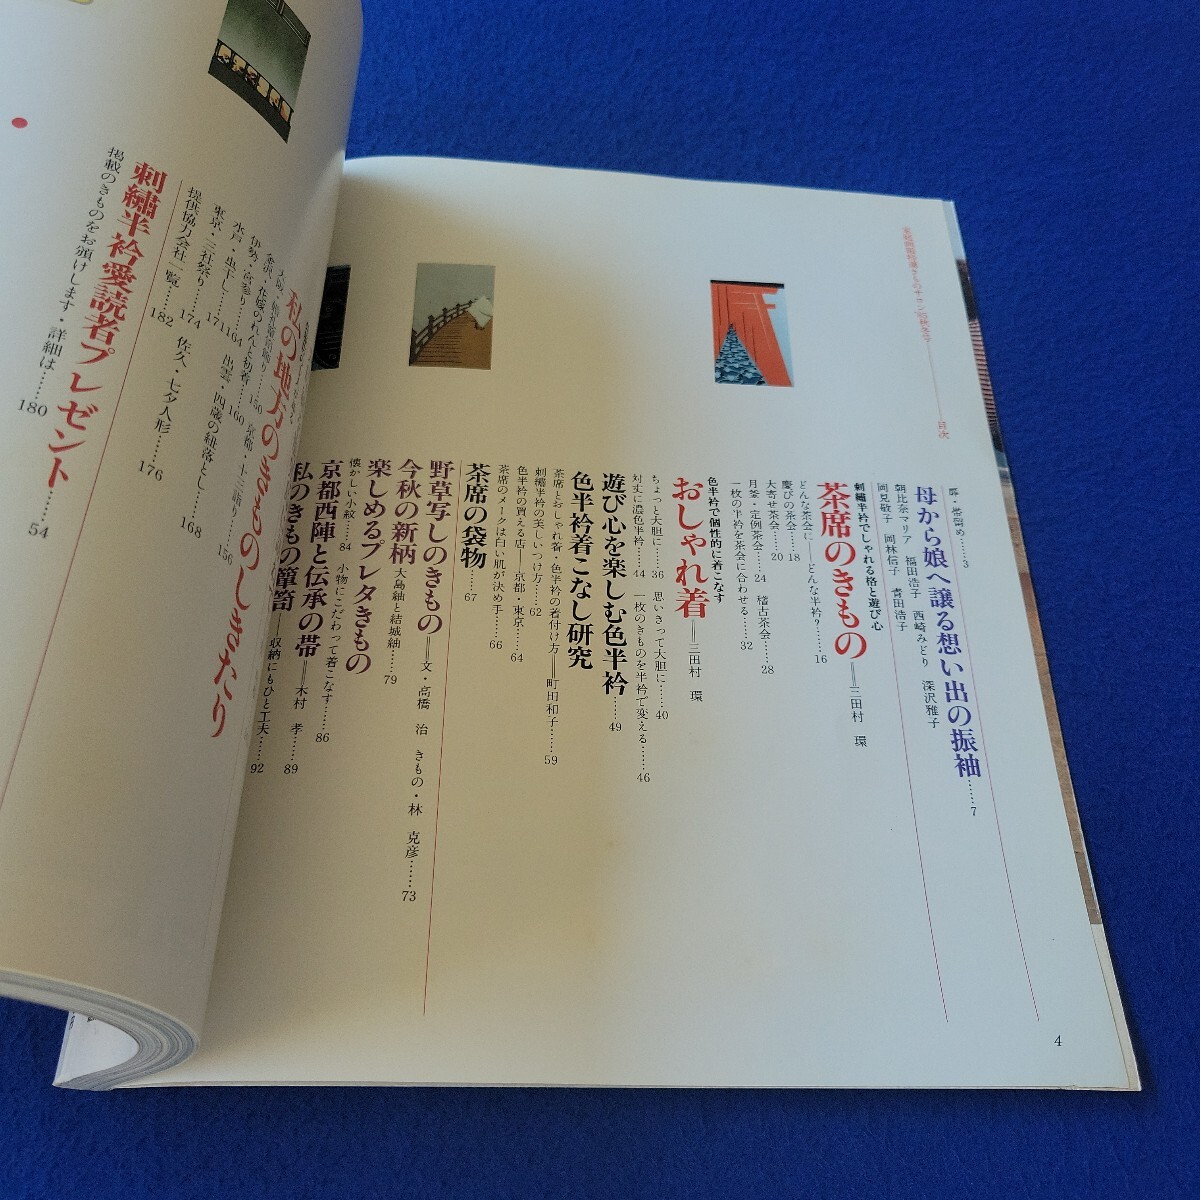 目次
扉・帯留め……3
母から娘へ譲る想い出の振袖……7
朝比奈マリア 福田浩子 西崎みどり 深沢雅子
岡見敬子 岡林信子 青田浩子
刺繡半衿でしゃれる格と遊び心
茶席のきもの──三田村 環
どんな茶会に──どんな半衿?……16
慶びの茶会……18
大寄せ茶会……20
月釜・定例茶会……24 稽古茶会……28
一枚の半衿を茶会に合わせる……32
色半衿で個性的に着こなす
おしゃれ着──三田村 環
ちょっと大胆に……36 思いきって大胆に……40
対丈に濃色半衿……44 一枚のきものを半衿で変える……46
遊び心を楽しむ色半衿……49
色半衿着こなし研究
茶席とおしゃれ着・色半衿の着付け方──町田和子……59
刺繡半衿の美しいつけ方……62
色半衿の買える店──京都・東京……64
茶席のメークは白い肌が決め手……66
茶席の袋物……67
野草写しのきもの──文・高橋 治 きもの・林 克彦……73
今秋の新柄 大島紬と結城紬……79
楽しめるプレタきもの
懐かしい小紋……84 小物にこだわって着こなす……86
京都西陣と伝承の帯──木村 孝……89
私のきもの簞笥──収納にもひと工夫……92
私の地方のきもののしきたり
金沢・花嫁のれんと初着……150 京都・十三詣り……156
伊勢・宮参り……160
水戸・虫干し……164 出雲・四歳の紐落とし……168
東京・三社祭り……171
174
佐久・七夕人形……176
提供協力会社一覧……182
刺繡半衿愛読者プレゼント……54
掲載のきものをお頒けします・詳細は……180
4